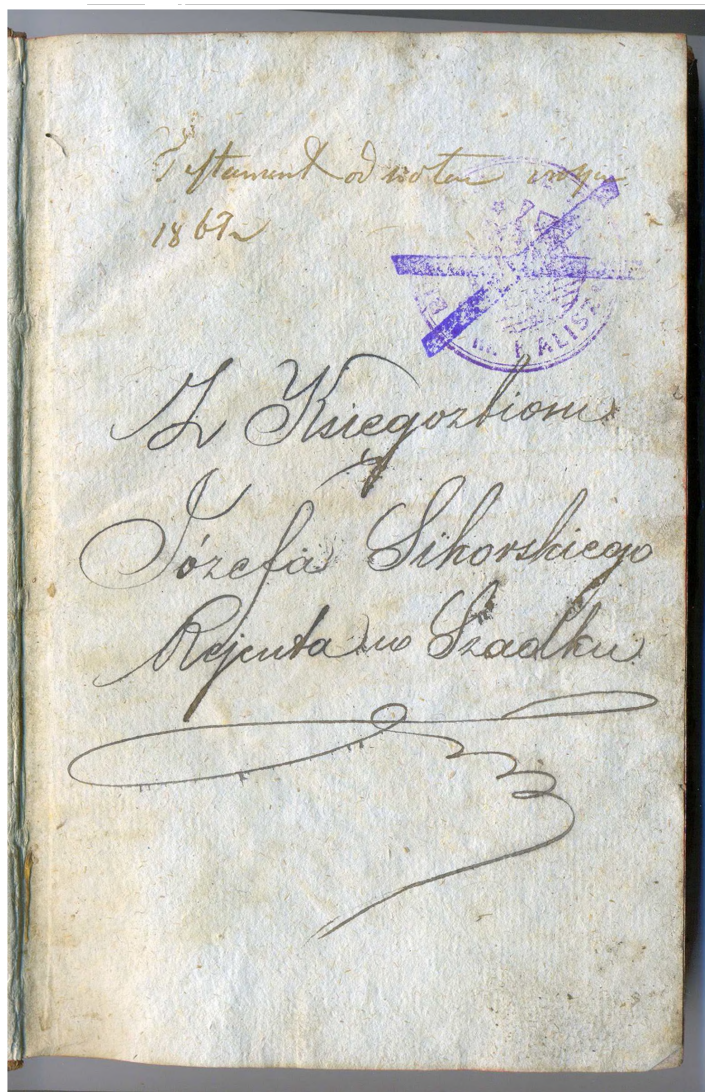 Testament od
1867
Z Księgozbioru
Józefa Sikorskiego
Rejenta w Szadku
m. KALISZ